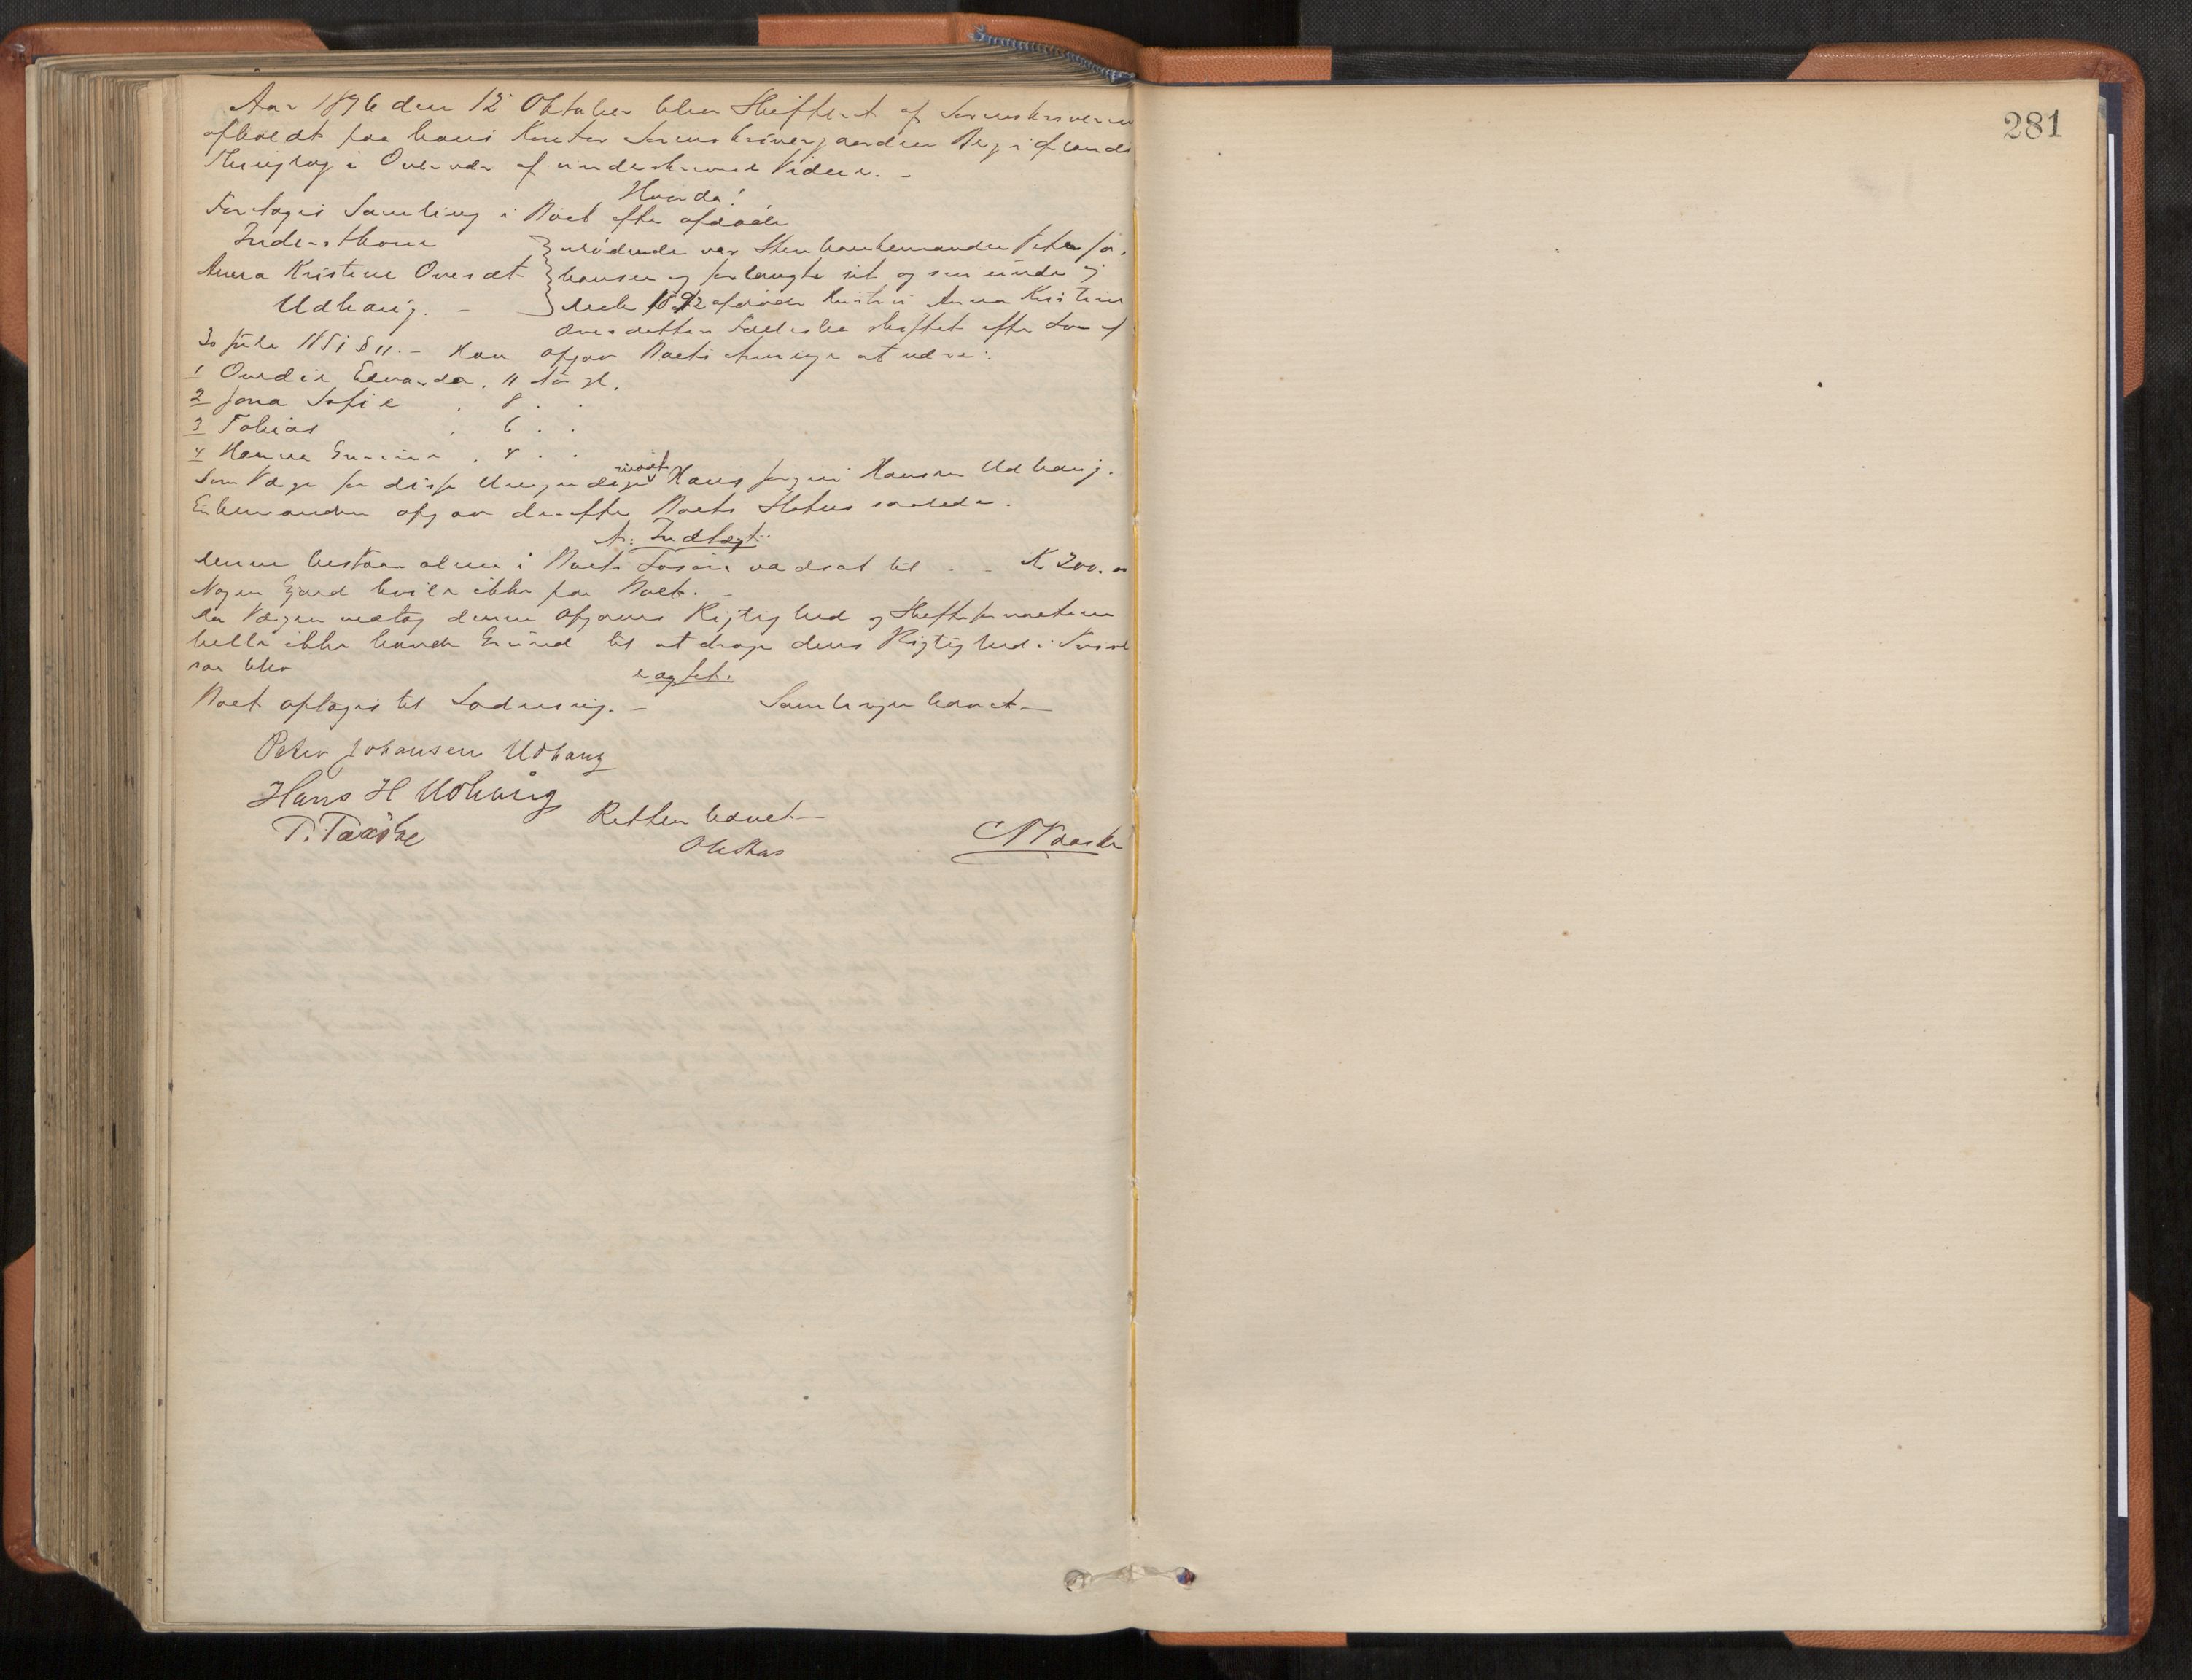 Aar 1896 den 12 Oktober blev Skifteret af Sorenskriveren
afholdt paa hans Kontor Sorenskrivergaarden
Thinglag i Overvær af underskrevne Vidner. –
Hvorda!
Foretoges Samling i Boet efter afdøde
Inderstkone
Anna Kristine Oversdt.
Udhaug. –
mødende var Peter Jo-
hansen og forlangte sit og sin
1892 afdøde Hustru Anna Kristine
Oversdatters skiftet efter Lov af
30 Juli 1851 § 11. – Han opgav Boets Arvinge at være:
1 Ovedie Edvarda, 11 Aar gl.
2 Jona Sofie , 8 . .
3 Tobias , 6 . .
4 Hanna , 4 . .
Som Værge for disse Umyndige mødt Hans Jørgen Hansen Udhaug.
Enkemanden opgav derefter Boets Status saaledes.
A: Indtægt:
Denne bestaar alene i Boets Løsøre værdsat til . . K 200.00
Nogen Gjæld hviler ikke paa Boet. –
Da Værgen vedtog denne Opgaves Rigtighed og Skifteforvalteren
heller ikke havde Grund til at drage dens Rigtighed i Tvivl
saa blev
eragtet:
Boet optages til Sodning. – Samlingen hævet –
Peter Johansen Udhaug
Hans H Udhaug
Retten hævet –
P. Taxøhe